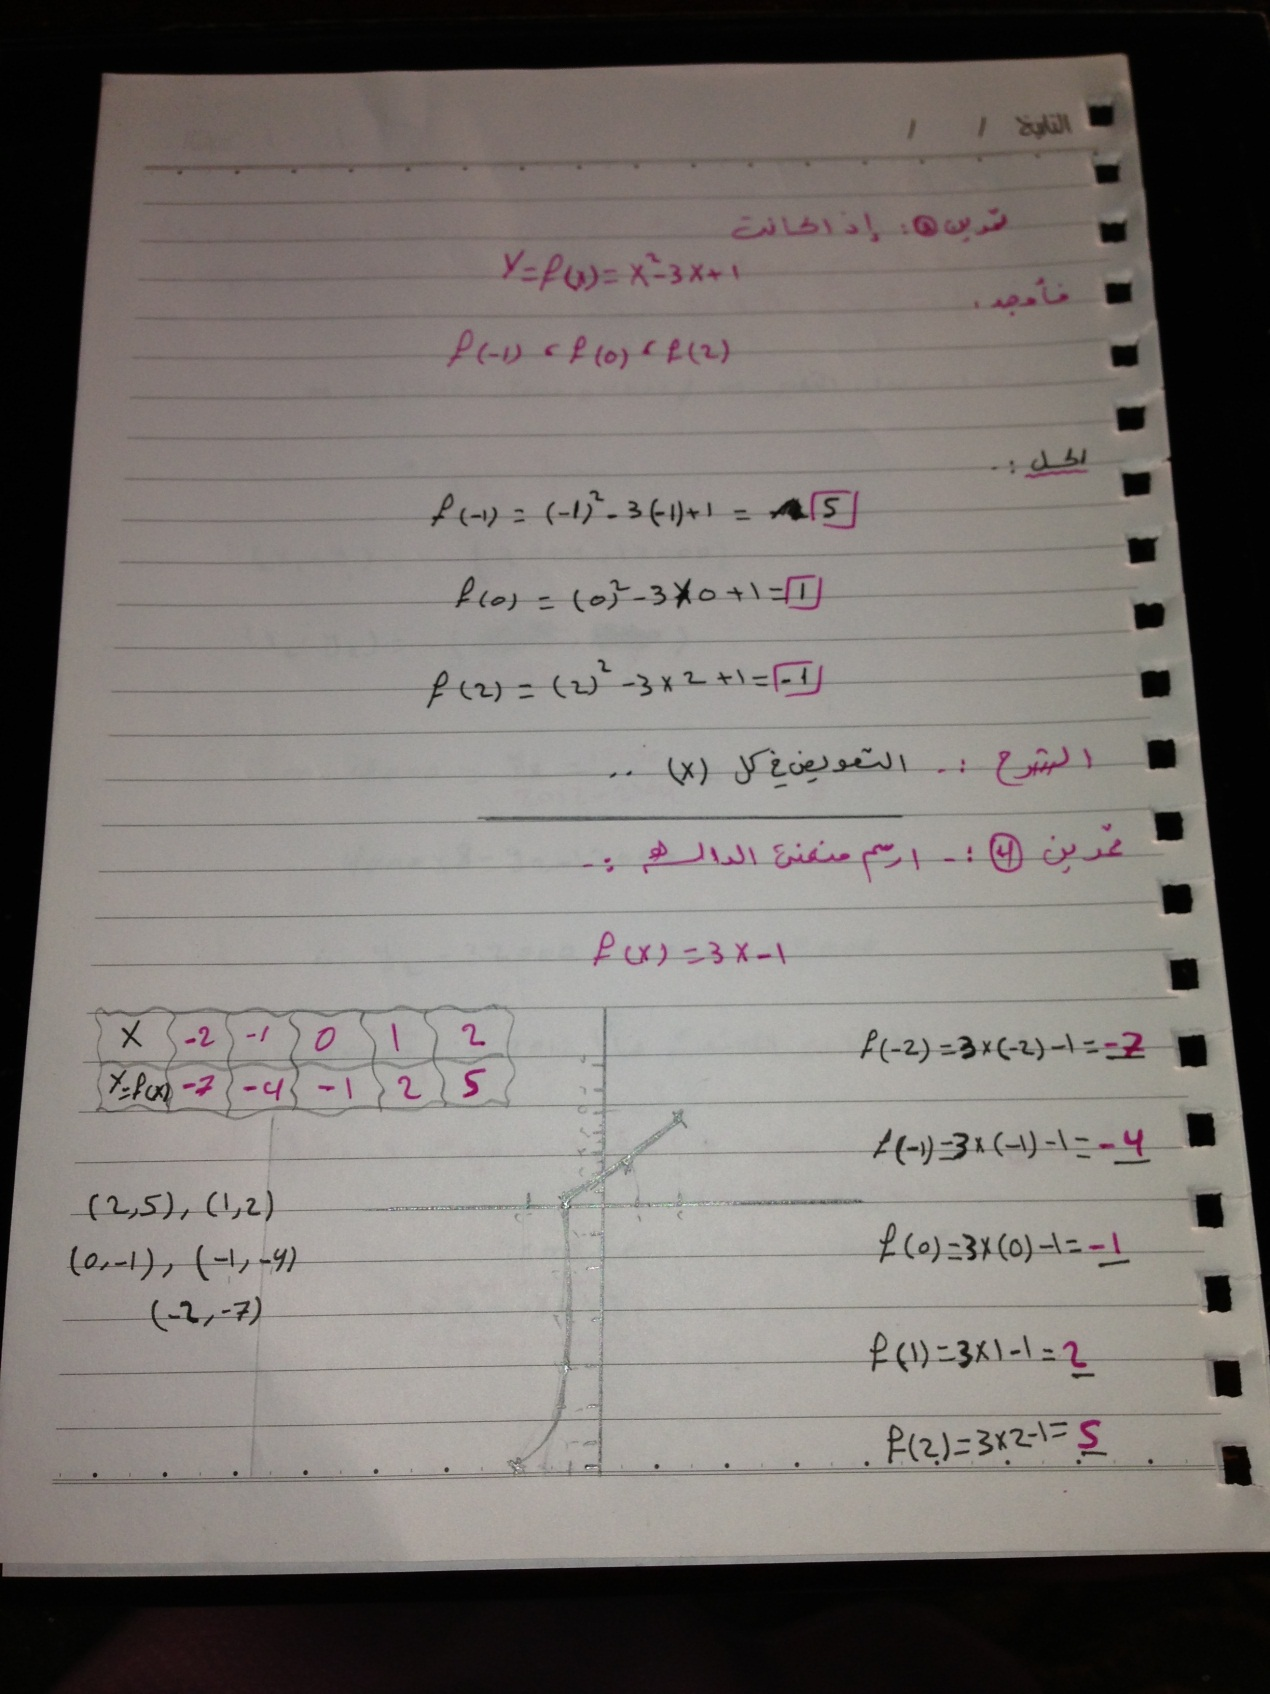 التاريخ / /
تمرين ③: إذا كانت
Y=f(x)=x²-3x+1
فأوجد :
f(-1) ، f(0) ، f(2)
الحل :.
f(-1) = (-1)²-3(-1)+1 = 5
f(0) = (0)²-3×0+1=1
f(2) = (2)²-3×2+1=-1
الشرح :. التعويض في كل (x) ..
تمرين ④ :- ارسم منحنى الدالة :-
f(x)=3x-1
X -2 -1 0 1 2
Y=f(x) -7 -4 -1 2 5
(2,5), (1,2)
(0,-1), (-1,-4)
(-2,-7)
f(-2)=3×(-2)-1=-7
f(-1)=3×(-1)-1=-4
f(0)=3×(0)-1=-1
f(1)=3×1-1=2
f(2)=3×2-1=5